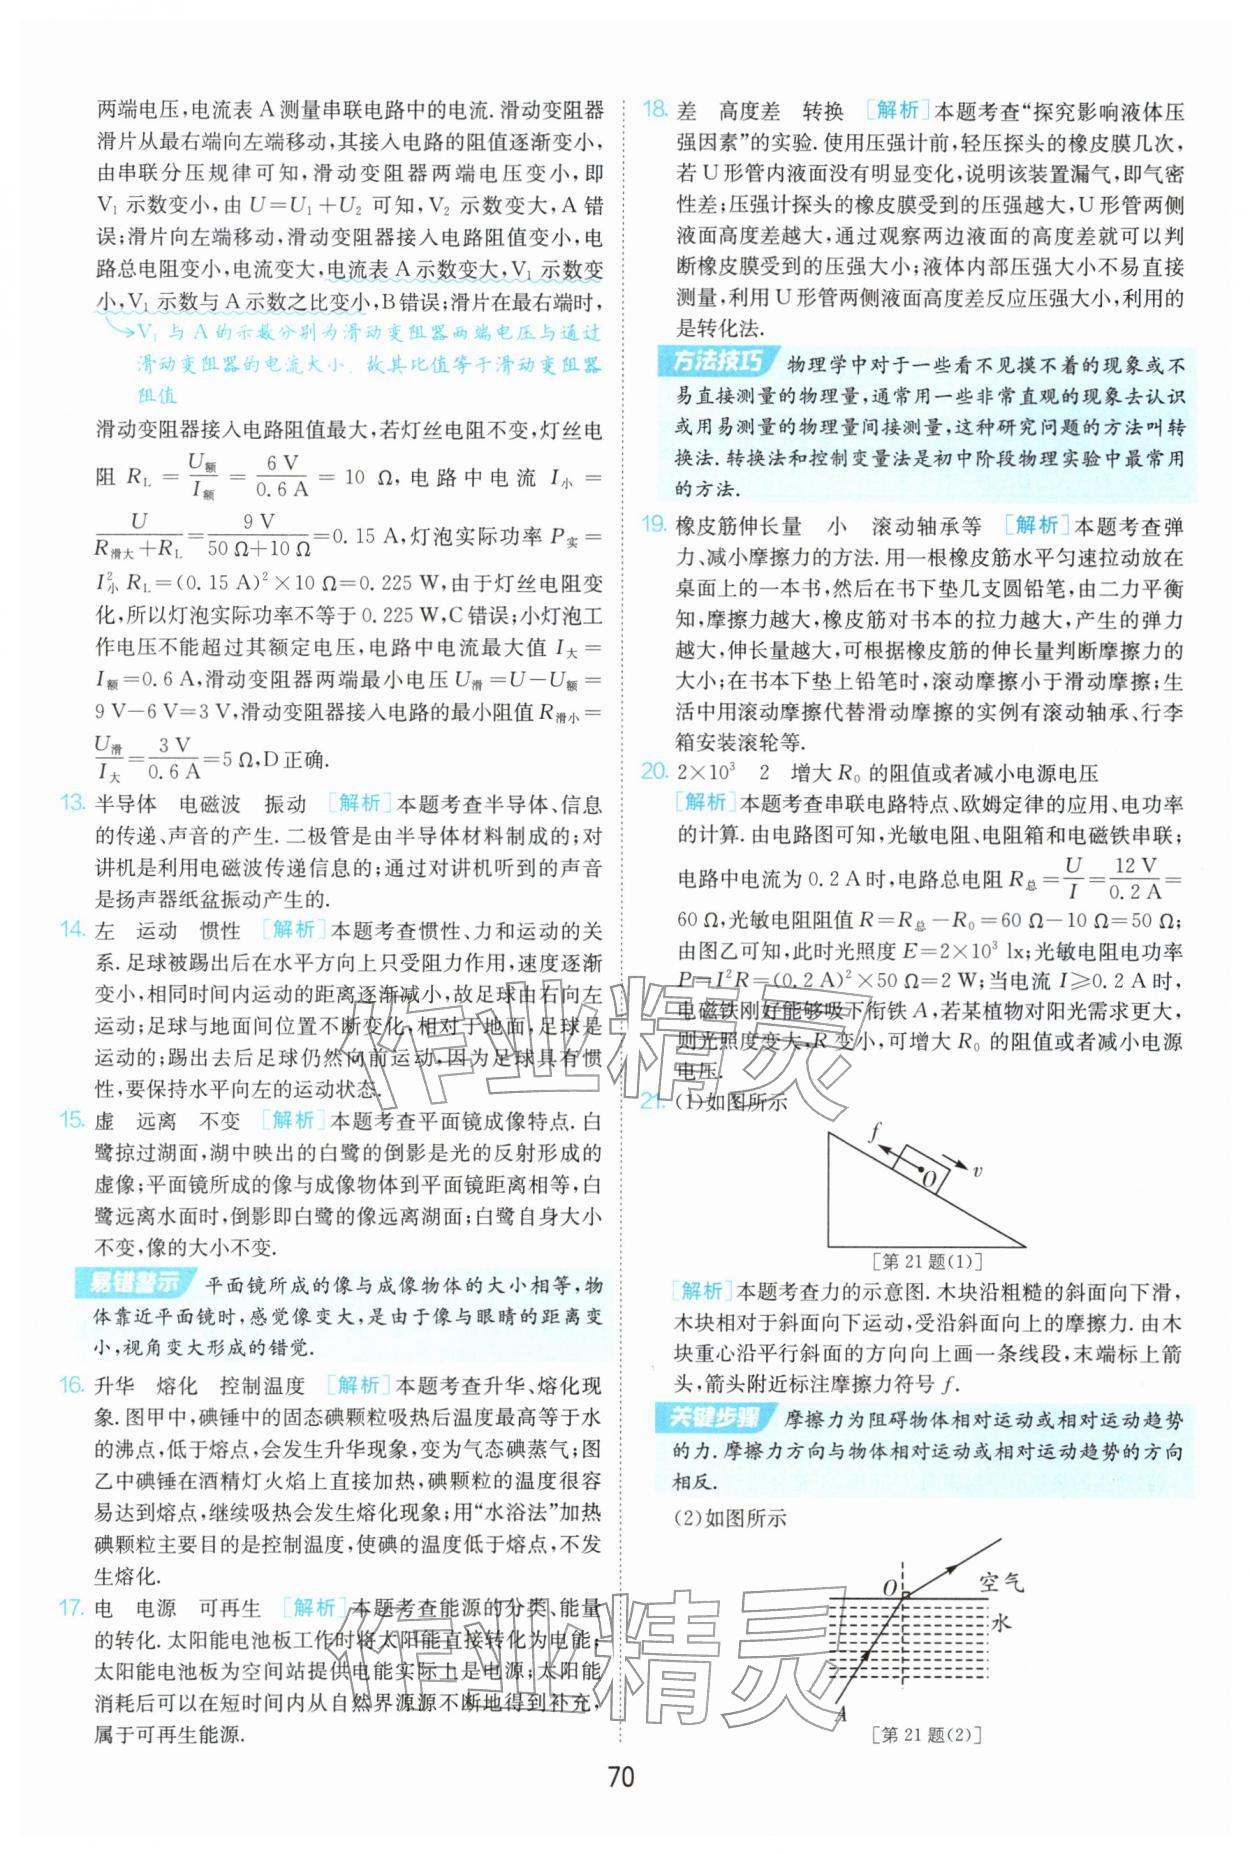 两端电压,电流表 A 测量串联电路中的电流. 滑动变阻器
滑片从最右端向左端移动,其接入电路的阻值逐渐变小,
由串联分压规律可知,滑动变阻器两端电压变小,即
V₁ 示数变小,由 U=U₁+U₂ 可知,V₂ 示数变大,A 错
误;滑片向左端移动,滑动变阻器接入电路阻值变小,电
路总电阻变小,电流变大,电流表 A 示数变大,V₁ 示数变
小,V₁ 示数与 A 示数之比变小,B 错误;滑片在最右端时,
V₁ 与 A 的示数分别为滑动变阻器两端电压与通过
滑动变阻器的电流大小. 故其比值等于滑动变阻器
阻值
滑动变阻器接入电路阻值最大,若灯丝电阻不变,灯丝电
阻 R_L = U额/I额 = 6 V/0.6 A = 10 Ω,电路中电流 I小 =
U/(R滑大+R_L) = 9 V/(50 Ω+10 Ω) = 0.15 A,灯泡实际功率 P实 =
I小² R_L=(0.15 A)²×10 Ω=0.225 W,由于灯丝电阻变
化,所以灯泡实际功率不等于 0.225 W,C 错误;小灯泡工
作电压不能超过其额定电压,电路中电流最大值 I大=
I额=0.6 A,滑动变阻器两端最小电压 U滑=U−U额=
9 V−6 V=3 V,滑动变阻器接入电路的最小阻值 R滑小=
U滑/I大=3 V/0.6 A=5 Ω,D 正确.
13. 半导体 电磁波 振动 [解析]本题考查半导体、信息
的传递、声音的产生. 二极管是由半导体材料制成的;对
讲机是利用电磁波传递信息的;通过对讲机听到的声音
是扬声器纸盆振动产生的.
14. 左 运动 惯性 [解析]本题考查惯性、力和运动的关
系. 足球被踢出后在水平方向上只受阻力作用,速度逐渐
变小,相同时间内运动的距离逐渐减小,故足球由右向左
运动;足球与地面间位置不断变化,相对于地面,足球是
运动的;踢出去后足球仍然向前运动,因为足球具有惯
性,要保持水平向左的运动状态.
15. 虚 远离 不变 [解析]本题考查平面镜成像特点. 白
鹭掠过湖面,湖中映出的白鹭的倒影是光的反射形成的
虚像;平面镜所成的像与成像物体到平面镜距离相等,白
鹭远离水面时,倒影即白鹭的像远离湖面;白鹭自身大小
不变,像的大小不变.
易错警示 平面镜所成的像与成像物体的大小相等,物
体靠近平面镜时,感觉像变大,是由于像与眼睛的距离变
小,视角变大形成的错觉.
16. 升华 熔化 控制温度 [解析]本题考查升华、熔化现
象. 图甲中,碘锤中的固态碘颗粒吸热后温度最高等于水
的沸点,低于熔点,会发生升华现象,变为气态碘蒸气;图
乙中碘锤在酒精灯火焰上直接加热,碘颗粒的温度很容
易达到熔点,继续吸热会发生熔化现象;用“水浴法”加热
碘颗粒主要目的是控制温度,使碘的温度低于熔点,不发
生熔化.
17. 电 电源 可再生 [解析]本题考查能源的分类、能量
的转化. 太阳能电池板工作时将太阳能直接转化为电能;
太阳能电池板为空间站提供电能实际上是电源;太阳能
消耗后可以在短时间内从自然界源源不断地得到补充,
属于可再生能源.
18. 差 高度差 转换 [解析]本题考查“探究影响液体压
强因素”的实验. 使用压强计前,轻压探头的橡皮膜几次,
若 U 形管内液面没有明显变化,说明该装置漏气,即气密
性差;压强计探头的橡皮膜受到的压强越大,U 形管两侧
液面高度差越大,通过观察两边液面的高度差就可以判
断橡皮膜受到的压强大小;液体内部压强大小不易直接
测量,利用 U 形管两侧液面高度差反应压强大小,利用的
是转化法.
方法技巧 物理学中对于一些看不见摸不着的现象或不
易直接测量的物理量,通常用一些非常直观的现象去认识
或用易测量的物理量间接测量,这种研究问题的方法叫转
换法. 转换法和控制变量法是初中阶段物理实验中最常用
的方法.
19. 橡皮筋伸长量 小 滚动轴承等 [解析]本题考查弹
力、减小摩擦力的方法. 用一根橡皮筋水平匀速拉动放在
桌面上的一本书,然后在书下垫几支圆铅笔,由二力平衡
知,摩擦力越大,橡皮筋对书本的拉力越大,产生的弹力
越大,伸长量越大,可根据橡皮筋的伸长量判断摩擦力的
大小;在书本下垫上铅笔时,滚动摩擦小于滑动摩擦;生
活中用滚动摩擦代替滑动摩擦的实例有滚动轴承、行李
箱安装滚轮等.
20. 2×10³ 2 增大 R₀ 的阻值或者减小电源电压
[解析]本题考查串联电路特点、欧姆定律的应用、电功率
的计算. 由电路图可知,光敏电阻、电阻箱和电磁铁串联;
电路中电流为 0.2 A 时,电路总电阻 R总=U/I=12 V/0.2 A=
60 Ω,光敏电阻阻值 R=R总−R₀=60 Ω−10 Ω=50 Ω;
由图乙可知,此时光照度 E=2×10³ lx;光敏电阻电功率
P=I²R=(0.2 A)²×50 Ω=2 W;当电流 I≥0.2 A 时,
电磁铁刚好能够吸下衔铁 A,若某植物对阳光需求更大,
则光照度变大,R 变小,可增大 R₀ 的阻值或者减小电源
电压.
21. (1)如图所示
f
O
v
[第 21 题(1)]
[解析]本题考查力的示意图. 木块沿粗糙的斜面向下滑,
木块相对于斜面向下运动,受沿斜面向上的摩擦力. 由木
块重心沿平行斜面的方向向上画一条线段,末端标上箭
头,箭头附近标注摩擦力符号 f.
关键步骤 摩擦力为阻碍物体相对运动或相对运动趋势
的力. 摩擦力方向与物体相对运动或相对运动趋势的方向
相反.
(2)如图所示
O
空气
水
A
[第 21 题(2)]
作业精灵
作业精灵
70